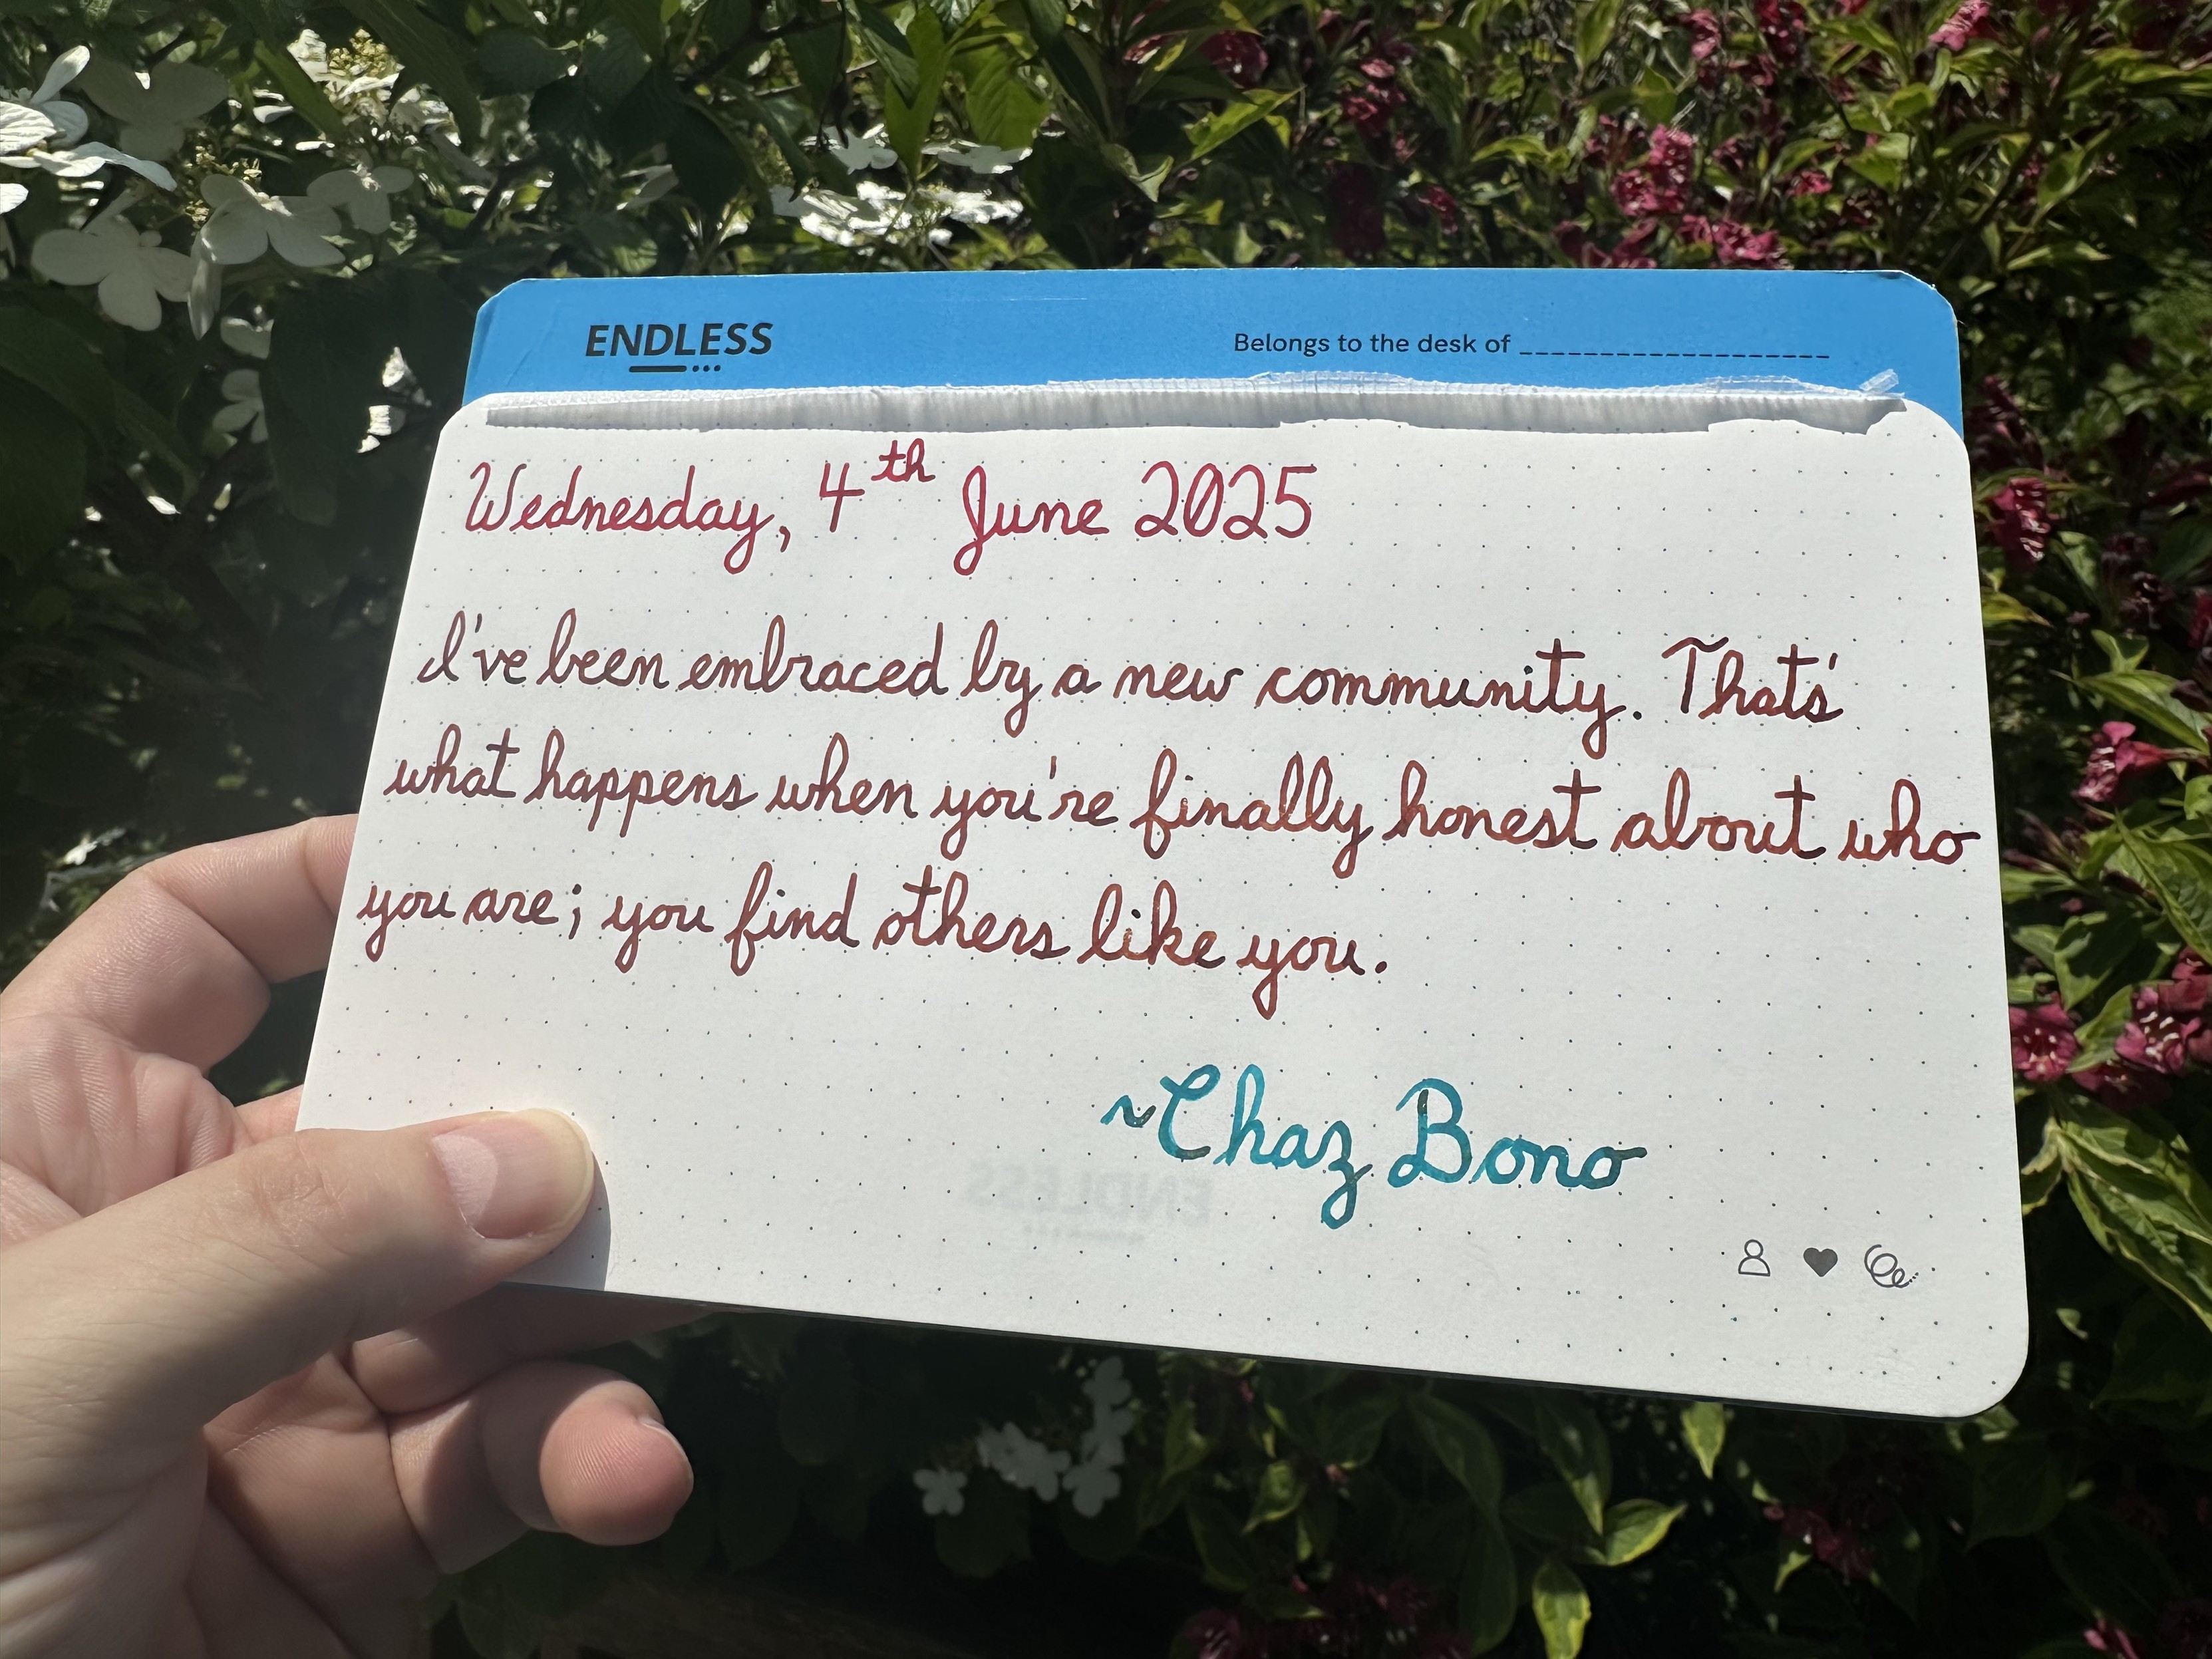 ENDLESS
Belongs to the desk of ____________________
Wednesday, 4th June 2025
I've been embraced by a new community. That's
what happens when you're finally honest about who
you are; you find others like you.
~Chaz Bono
ENDLESS